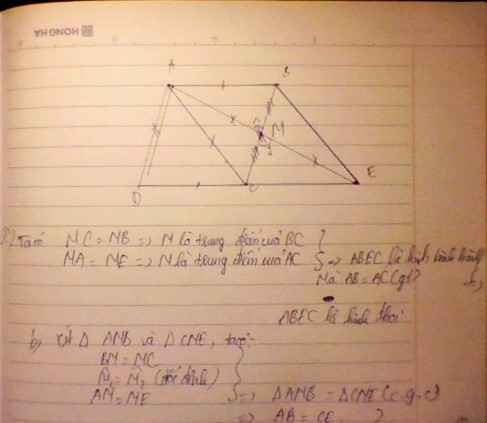 HONG HA
A B
M
D C E
Ta có MC = MB => M là trung điểm của BC
MA = ME => M là trung điểm của AC => ABEC là hình bình hành
Mà AB = AC (gt)
ABEC là hình thoi
b) Xét Δ AMB và Δ CME, ta có:
BM = MC
M₁ = M₂ (đối đỉnh)
AM = ME => Δ AMB = Δ CME (c.g.c)
=> AB = CE